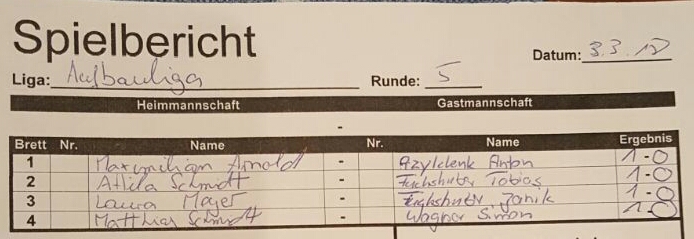 Spielbericht
Datum: 3.3.17
Liga: Aufbauliga Runde: 5
Heimmannschaft Gastmannschaft
-
Brett Nr. Name Nr. Name Ergebnis
1 Maximilian Arnold - Anton 1-0
2 Attila Schmidt - Fuchshuber Tobias 1-0
3 Laura Majer - Fuchshuber, Janik 1-0
4 Matthias Schmidt - Wagner Simon 1-0